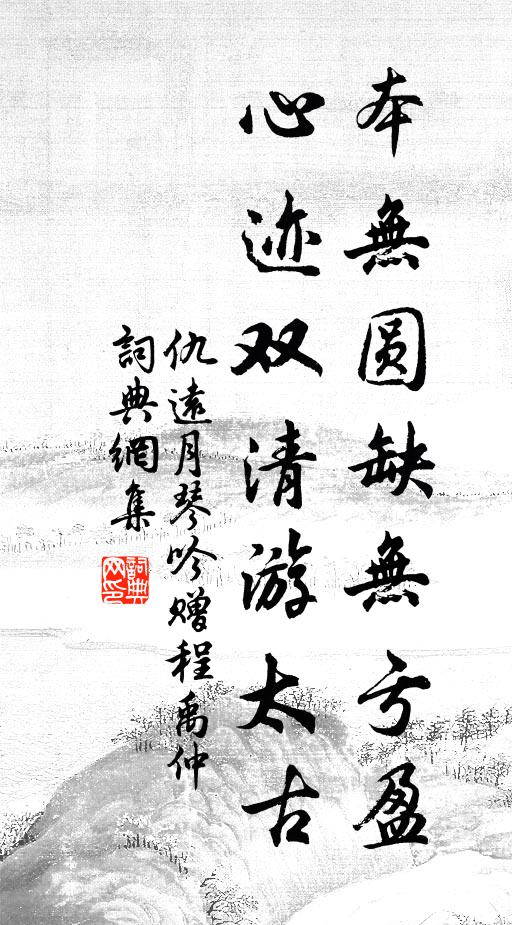 本無圆缺無亏盈
心迹双清游太古
仇遠月琴吟赠程禹仲
詞典網集
詞典網印